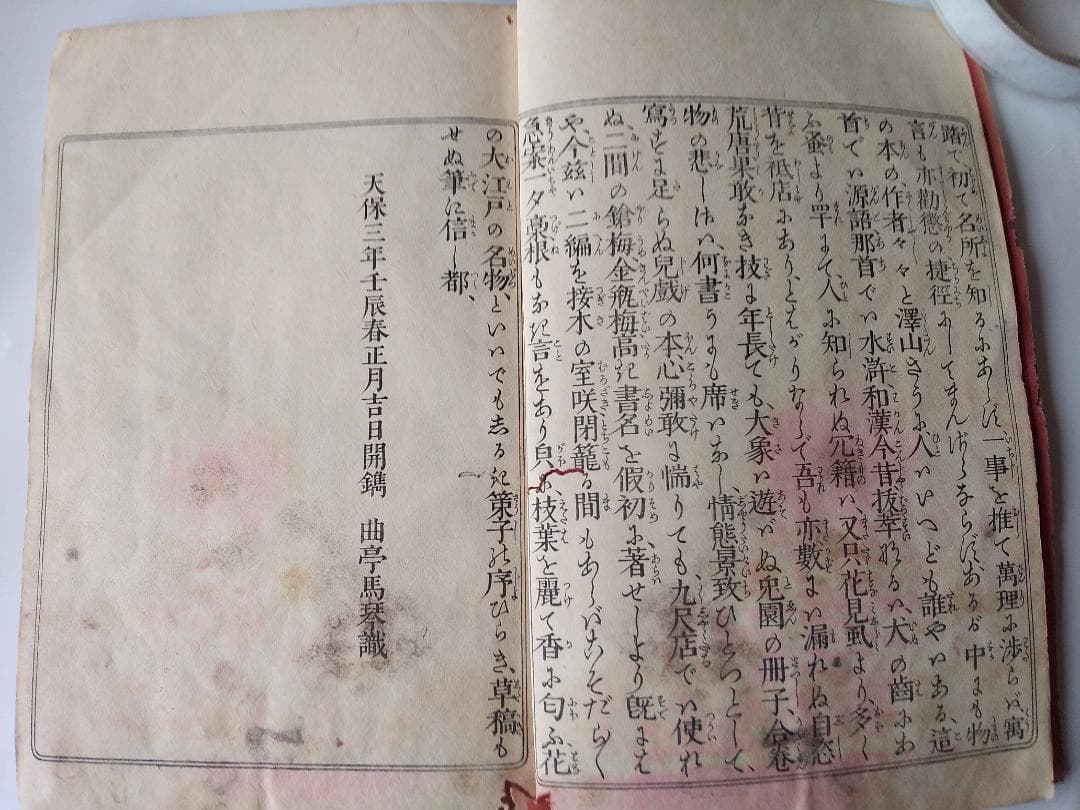 蹈で初て名所を知るにあらず、一事を推て萬理に渉らバ、寓
言も亦勸懲の捷徑にしてまんざらならず、あるが中にも物
の本の作者々々と澤山さうに人ハいへども誰やハある、這
首でハ源語那首でハ水滸和漢今昔抜萃するハ犬の齒にあ
ふ蚤より罕にて、人に知られぬ冗籍ハ、又只花見虱より、多く
昔を祗店にあり、とはがりながら吾も亦數にハ漏れぬ自恣
荒唐果敢なき技に年長ても、大象ハ遊バぬ兎園の册子、合卷
物の悲しさハ、何書うにも席ハなし、情態景致ひとつとして、
寫すに足らぬ兒戲の本心彌敢に惴りても九尺店でハ使れ
ぬ、二間の鎗梅、金瓶梅高き書名を假初に著せしより既にはや
、今茲ハ二編を接木の室咲閉籠る間もあらバこそだらく
急案一夕藁根もなき言をあり只に、枝葉を麗て香に匂ふ花
の大江戸の名物、といハでもしるき策子の序びらき、草稿も
せぬ筆に信し都、
天保三年壬辰春正月吉日開鐫　曲亭馬琴識
一